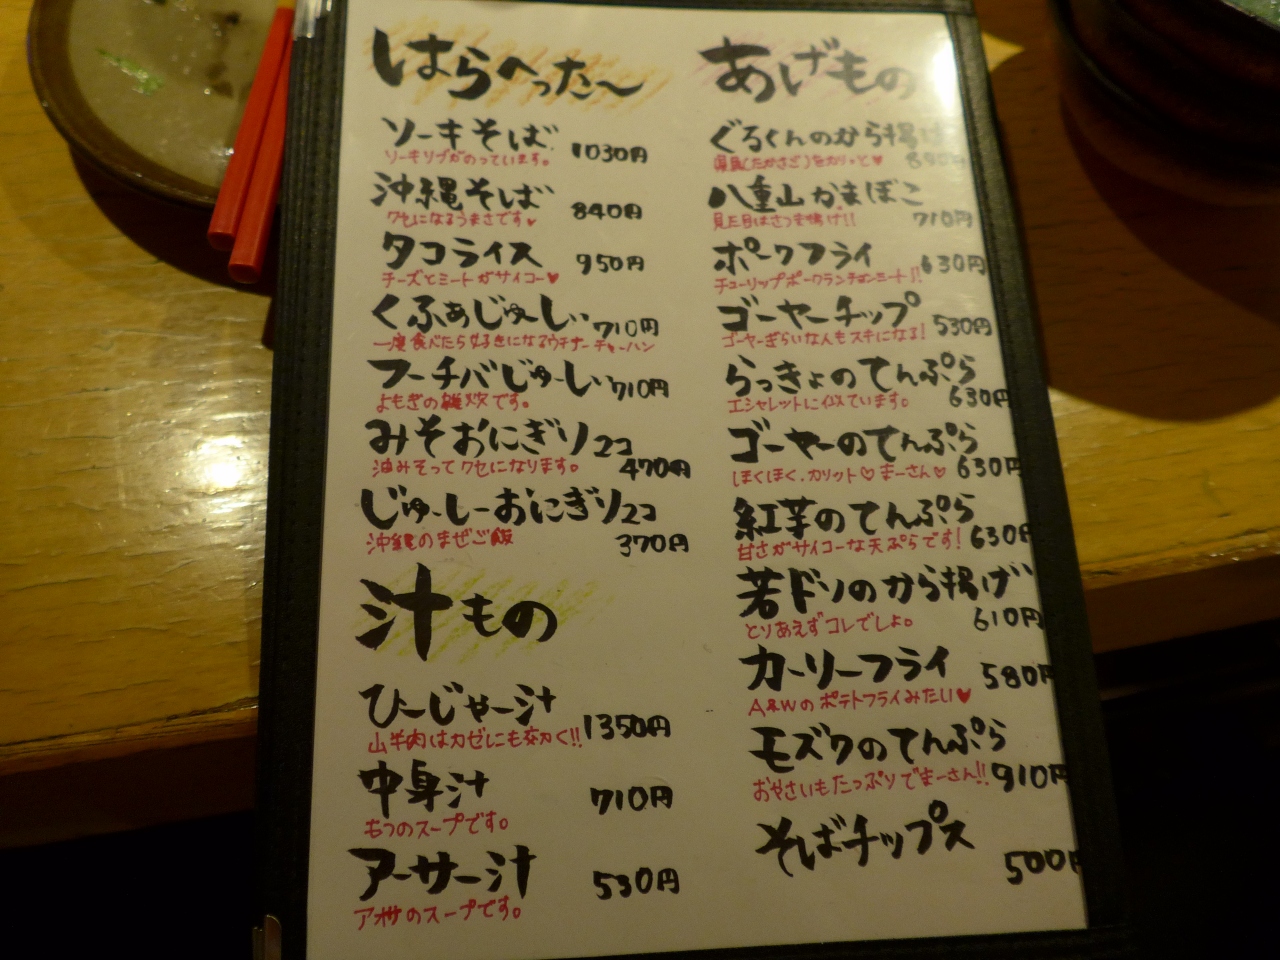 はらへった〜
ソーキそば 1030円
ソーキリブがのっています。
沖縄そば 840円
クセになるうまさです♥
タコライス 950円
チーズとミートがサイコー♥
くふぁじゅーしぃ 710円
一度食べたら好きになるウチナーチャーハン
フーチバじゅーしぃ 710円
よもぎの雑炊です。
みそおにぎり2コ 470円
油みそってクセになります。
じゅーしーおにぎり2コ 370円
沖縄のまぜご飯
汁もの
ひーじゃー汁 1350円
山羊肉はカゼにも効く!!
中身汁 710円
もつのスープです。
アーサー汁 530円
アオサのスープです。
あげもの
ぐるくんのから揚げ
(たかさご)をカリッと♥
八重山かまぼこ 710円
見た目はさつま揚げ!!
ポークフライ 630円
チューリップポークランチョンミート!!
ゴーヤーチップ 530円
ゴーヤーぎらいな人もスキになる!
らっきょのてんぷら 630円
エシャレットに似ています。
ゴーヤーのてんぷら 630円
ほくほく、カリット♡まーさん♡
紅芋のてんぷら 630円
甘さがサイコーな天ぷらです!
若ドリのから揚げ 610円
とりあえずコレでしょ。
カーリーフライ 580円
A&Wのポテトフライみたい♥
モズクのてんぷら 910円
おやさいもたっぷりでまーさん!!
そばチップス 500円